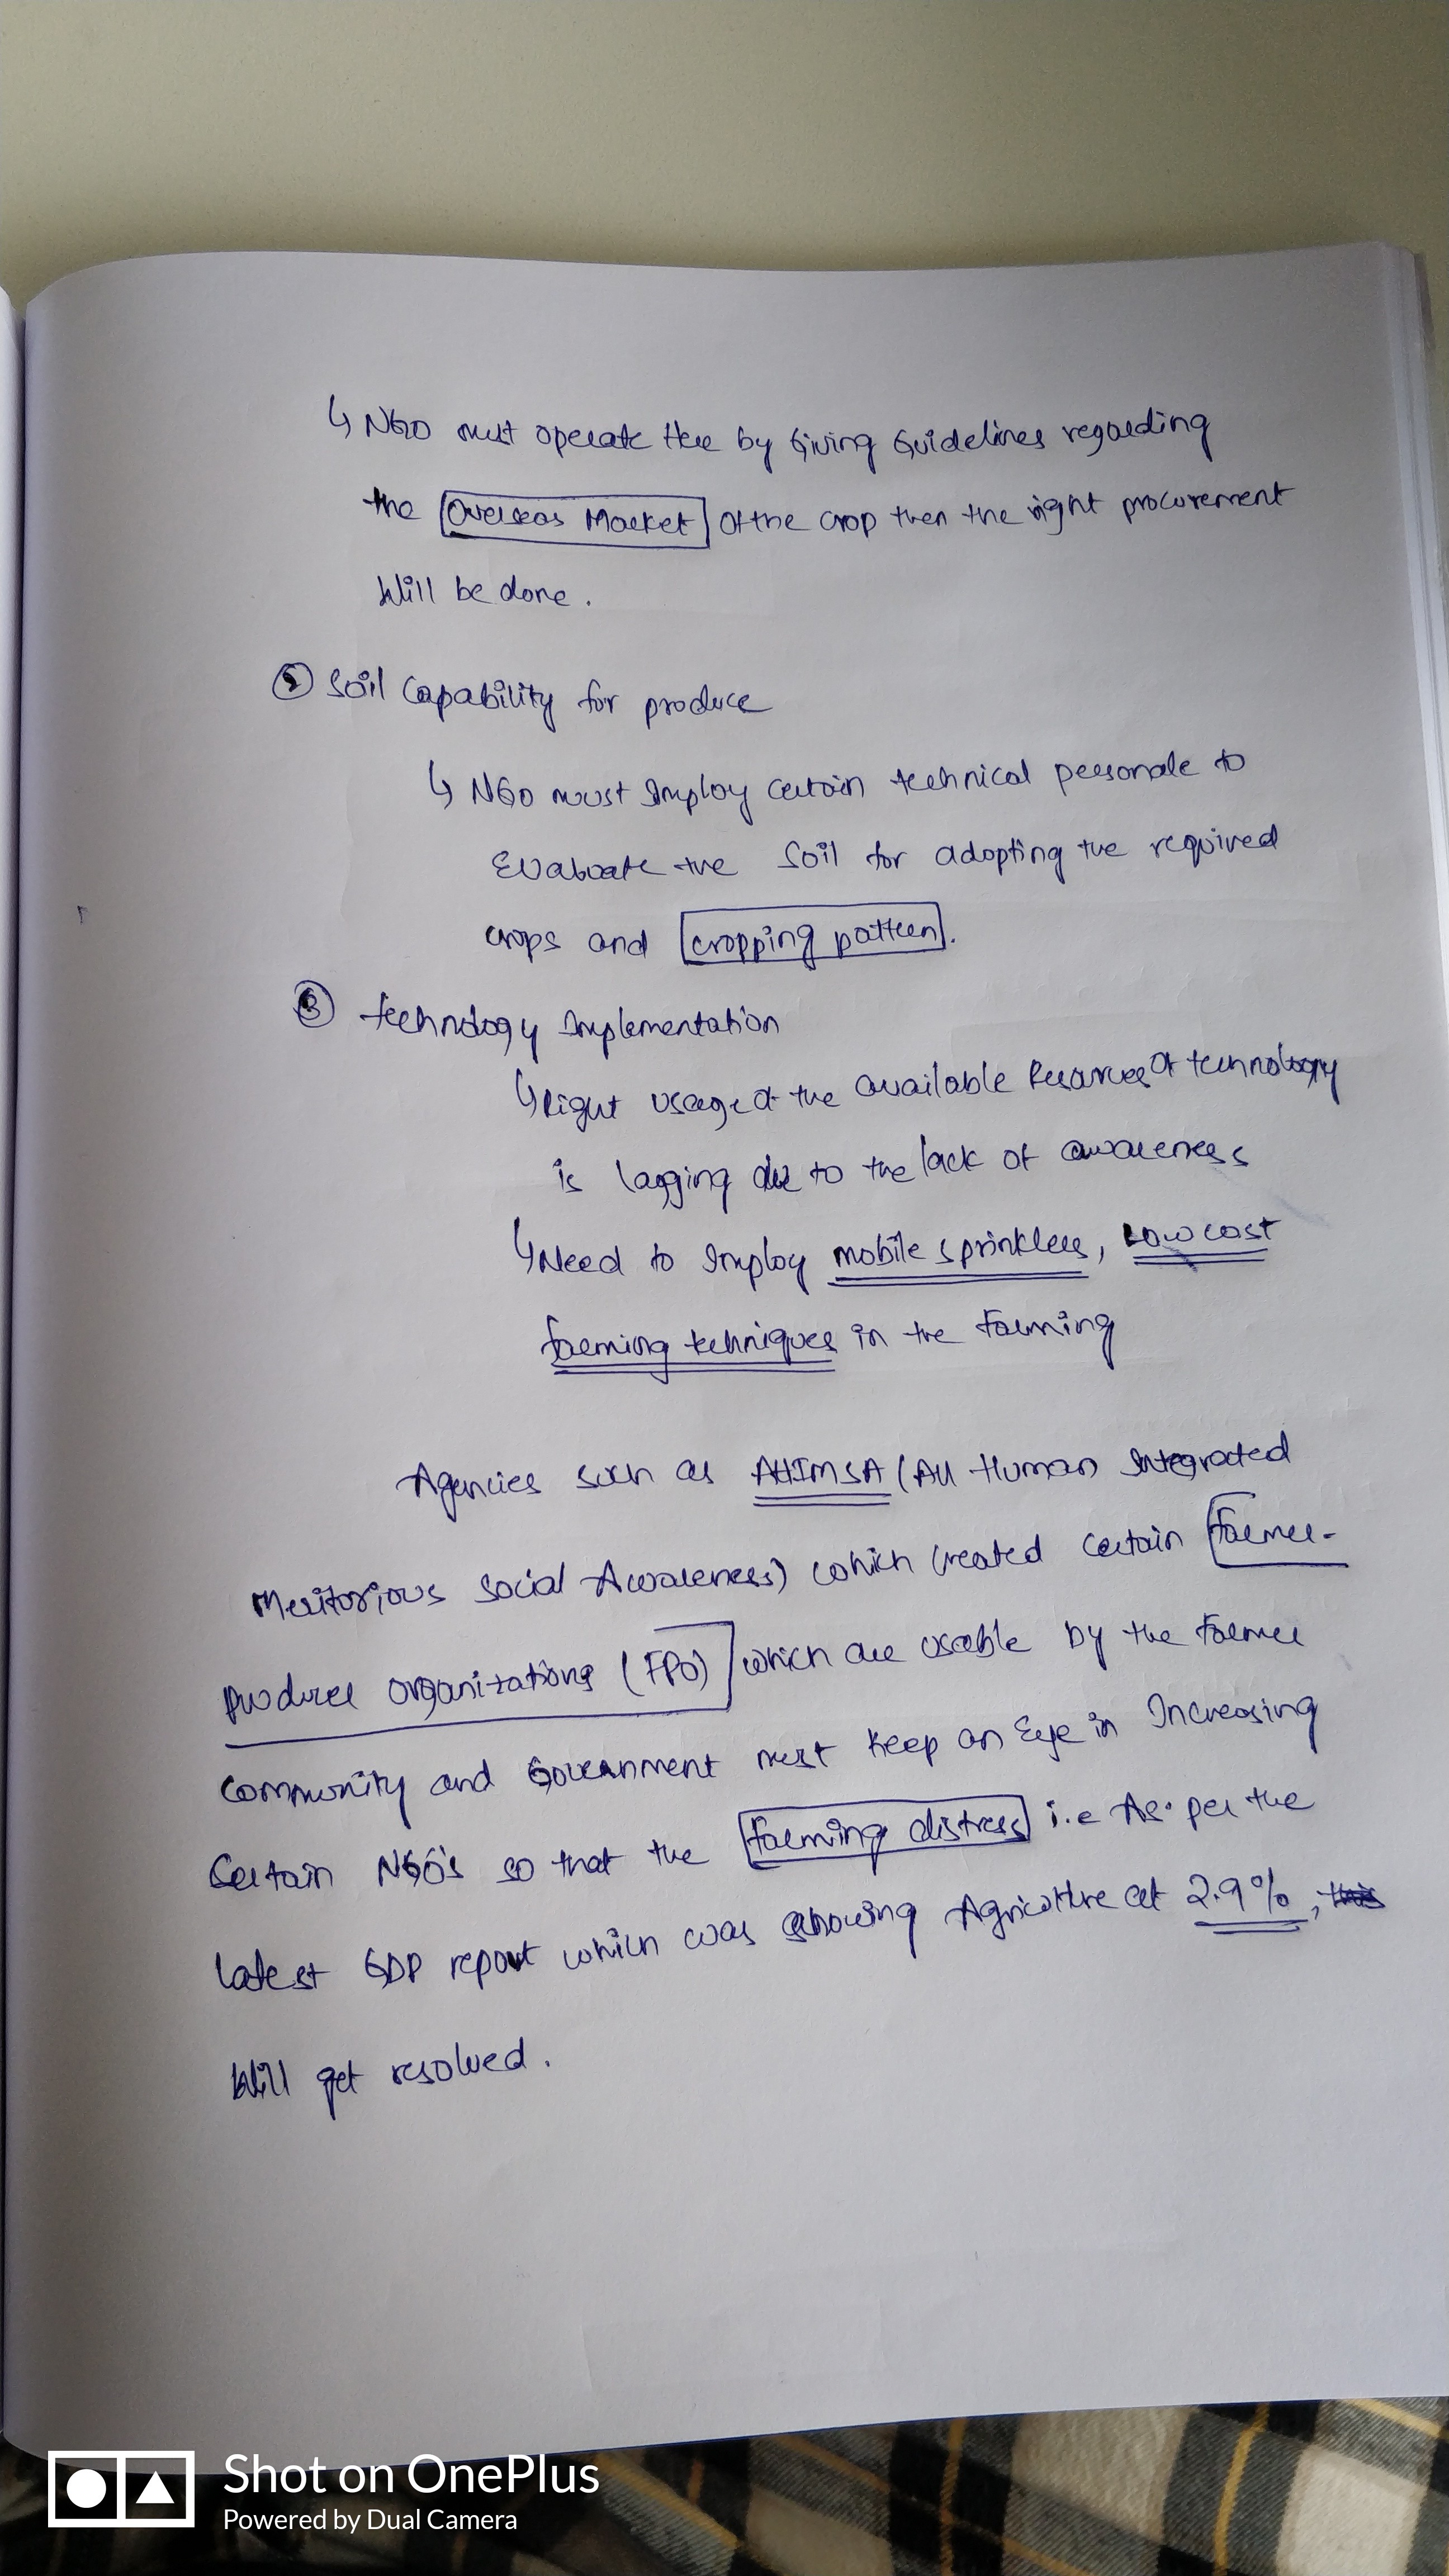 ↳ NGO must operate here by Giving Guidelines regarding
the Overseas Market of the crop then the right procurement
Will be done.
⑤ Soil Capability for produce
↳ NGO must Imploy certain technical personale to
Evaluate the Soil for adopting the required
crops and cropping pattern.
⑥ technology Implementation
↳ Right usage of the available Resources of technology
is lagging due to the lack of awareness
↳ Need to Imploy mobile sprinklers, Low cost
farming techniques in the farming
Agencies such as AHIMSA (All Human Integrated
Meritorious Social Awareness) which created certain Farmer-
producer organizations (FPO) which are usable by the farmer
community and Government must keep an Eye in Increasing
Certain NGO's so that the farming distress i.e As per the
latest GDP report which was showing Agriculture at 2.9%,
Will get resolved.
Shot on OnePlus
Powered by Dual Camera